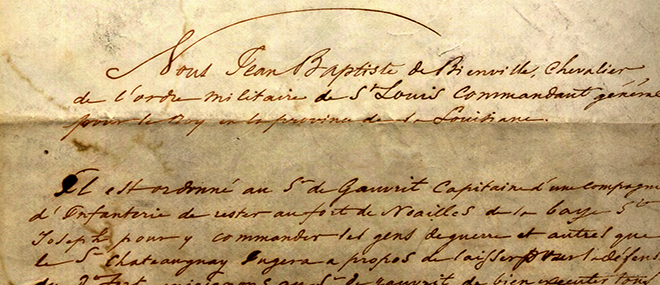 Nous Jean Baptiste de Bienville, Chevalier
de l'ordre militaire de St Louis Commandant général
pour le Roy en la province de la Louisiane.
Il est ordonné au Sr de Gauvrit Capitaine d'une compagnie
d'Infanterie de rester au fort de Noailles de la baye Ste
Joseph pour y commander les gens de guerre et autres que
le Sr Chateaugnay Jugera a propos de laisser pour la défense
du d. Fort, enjoignons au Sr de Gauvrit de bien executer tous